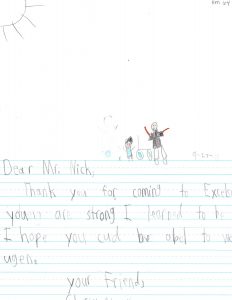 Dear Mr. Nick,
Thank you for coming to Excel
you are strong I learned to be
I hope you cud be abel to
ugen.
your Friend,